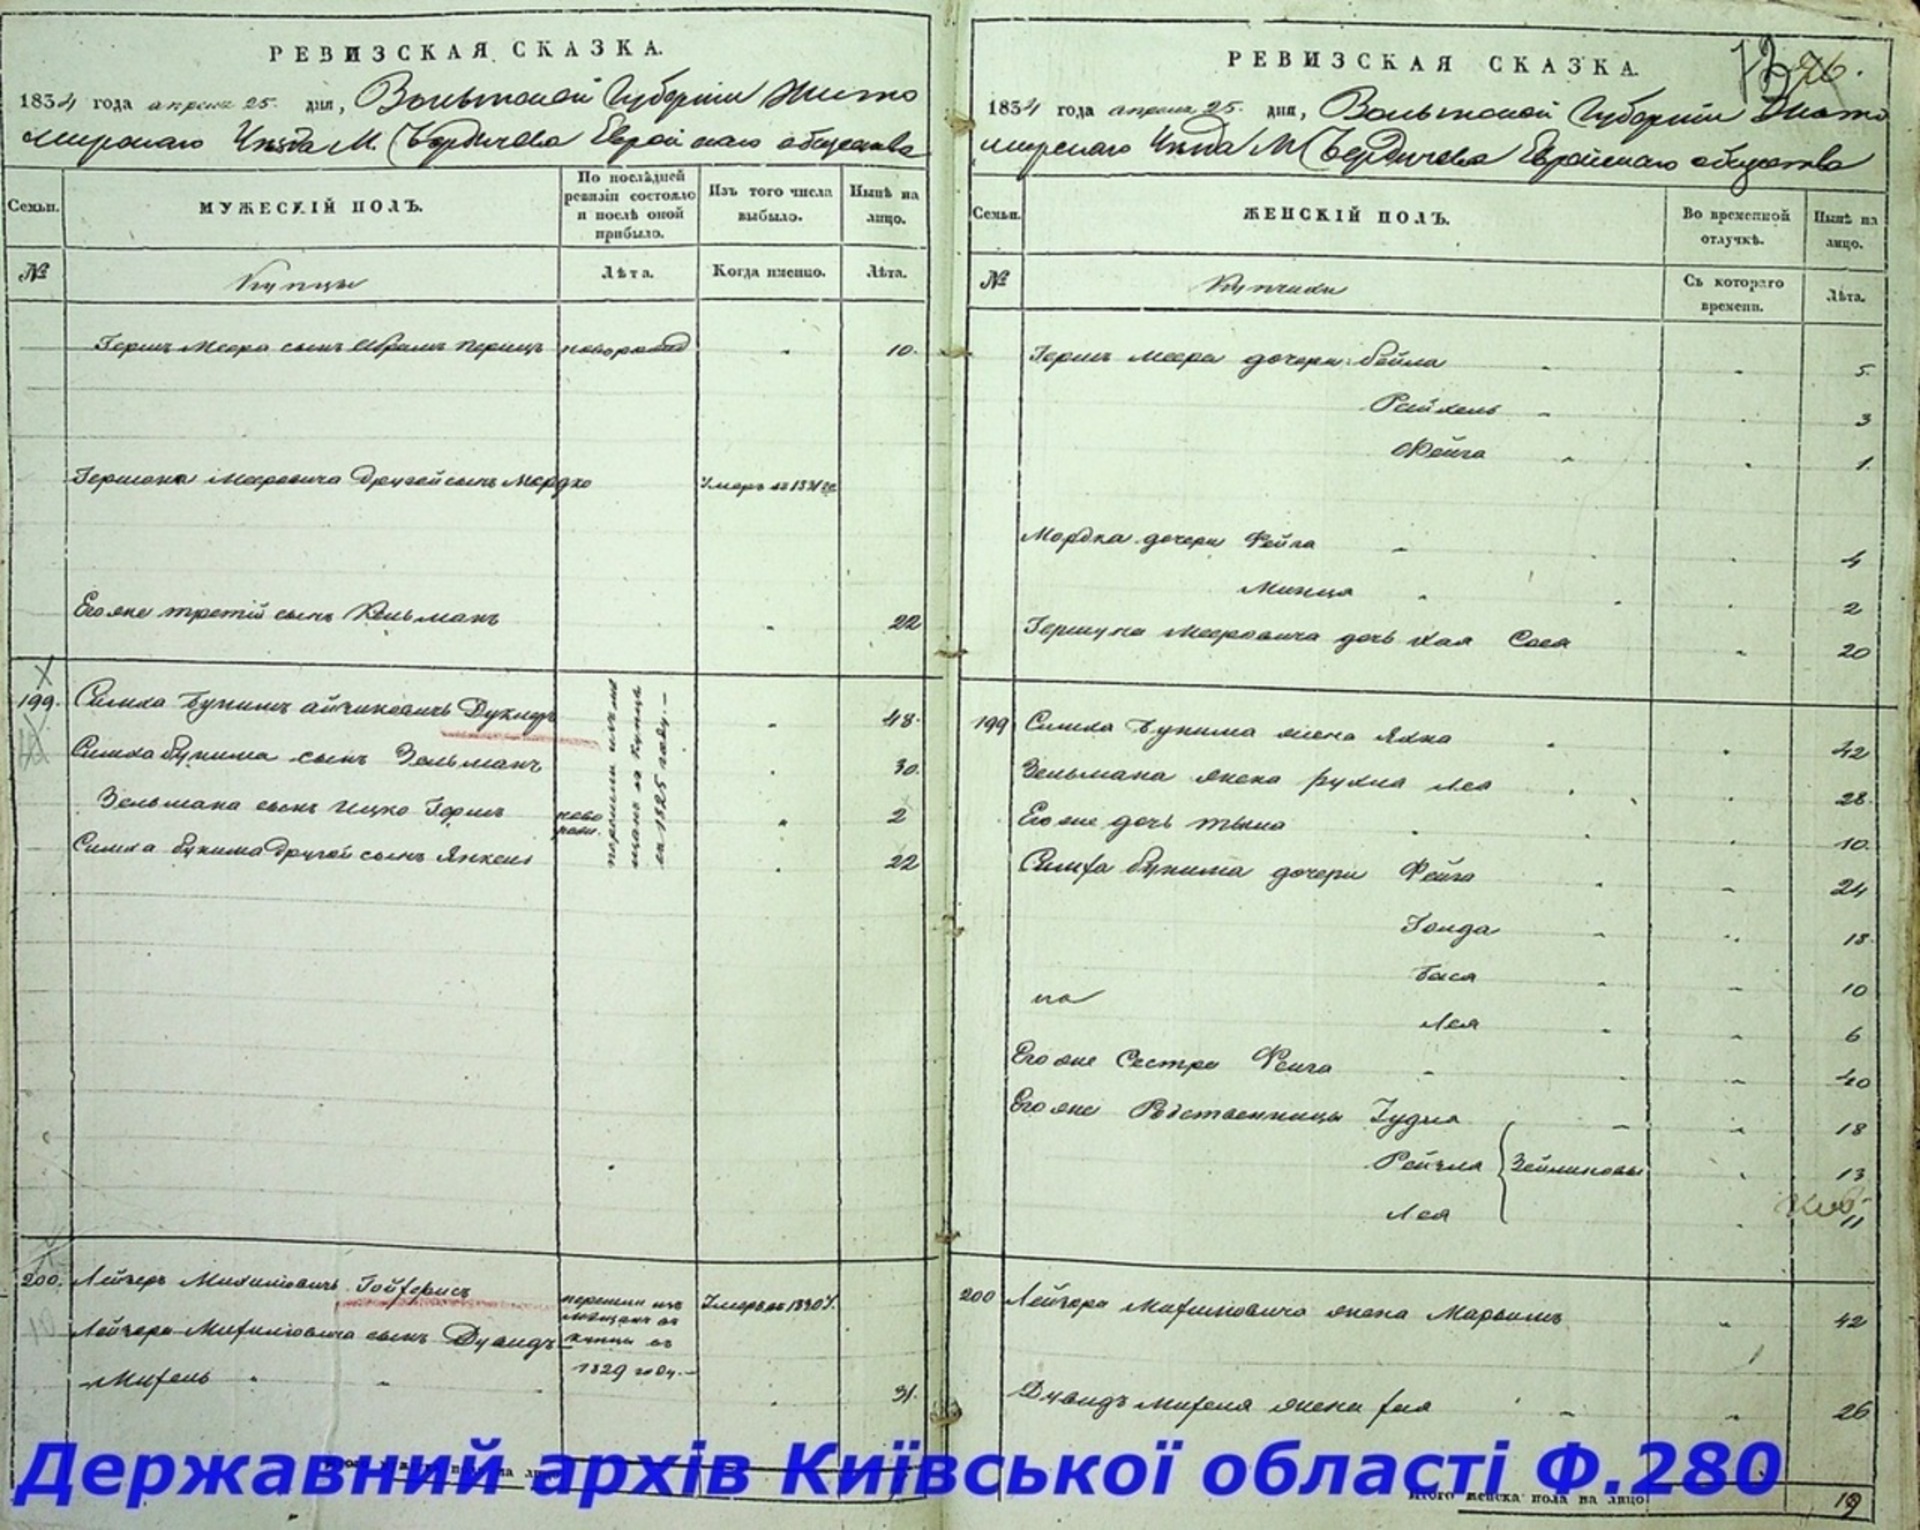 РЕВИЗСКАЯ СКАЗКА.
1834 года апреля 25. дня, Волынской Губернии Жито
мирскаго Уезда М. Бердичева Еврейскаго общества
Семьи.
МУЖЕСКІЙ ПОЛЪ.
По послѣдней ревизіи состояло и послѣ оной прибыло.
Изъ того числа выбыло.
Нынѣ на лицо.
№
Купцы
Лѣта.
Когда именно.
Лѣта.
Герша Меера сынъ Абрамъ Перецъ новорожд „ 10.
Гершона Мееровича другой сынъ Мордко Умеръ въ 1831 го
Его же третій сынъ Кельманъ „ 22
199. Симха Бунимъ Айзиковичъ „ 48.
Симха Бунима сынъ Зельманъ „ 30.
Зельмана сынъ Ицко Герш ново рожд. „ 2
Симха Бунима другой сынъ Янкель „ 22
перешли изъ ме
щанъ въ купцы
въ 1825 году.—
200. Лейзеръ Михилювичъ перешли изъ Умеръ въ 1830 г.
Лейзера Михилювича сынъ Дувидъ мещанъ въ
купцы въ
Михель „ „ 1829 году.— 31.
РЕВИЗСКАЯ СКАЗКА.
76.
1834 года апреля 25. дня, Волынской Губерніи Жито
мирскаго Уезда М Бердичева Еврейскаго общества
Семьи.
ЖЕНСКІЙ ПОЛЪ.
Во временной отлучкѣ.
Нынѣ на лицо.
№
Купчихи
Съ котораго времени.
Лѣта.
Герша Меера дочери: Бейла „ „ 5.
Рейхель „ „ 3
Фейга „ „ 1.
Мордка дочери Фейга „ 4
Минца „ 2
Мееровича дочь Хая Сося „ 20
199 Симха Бунима жена Яхна „ „ 42
Зельмана жена Рухля Лея „ 28.
Его же дочь „ 10.
Симха Бунима дочери Фейга „ „ 24
Голда „ „ 18
Бася „ „ 10
Лея „ „ 6
Его же Сестра Фейга „ „ 40
Его же Родственницы „ „ 18
Рейзля Зейликовы „ 13
Лея „ 11
200 Лейзера Михилювича жена Марьямъ „ 42
Дувидъ Михеля жена Хая „ „ 26
Итого женска пола на лицо
19
Державний архів Київської області Ф.280